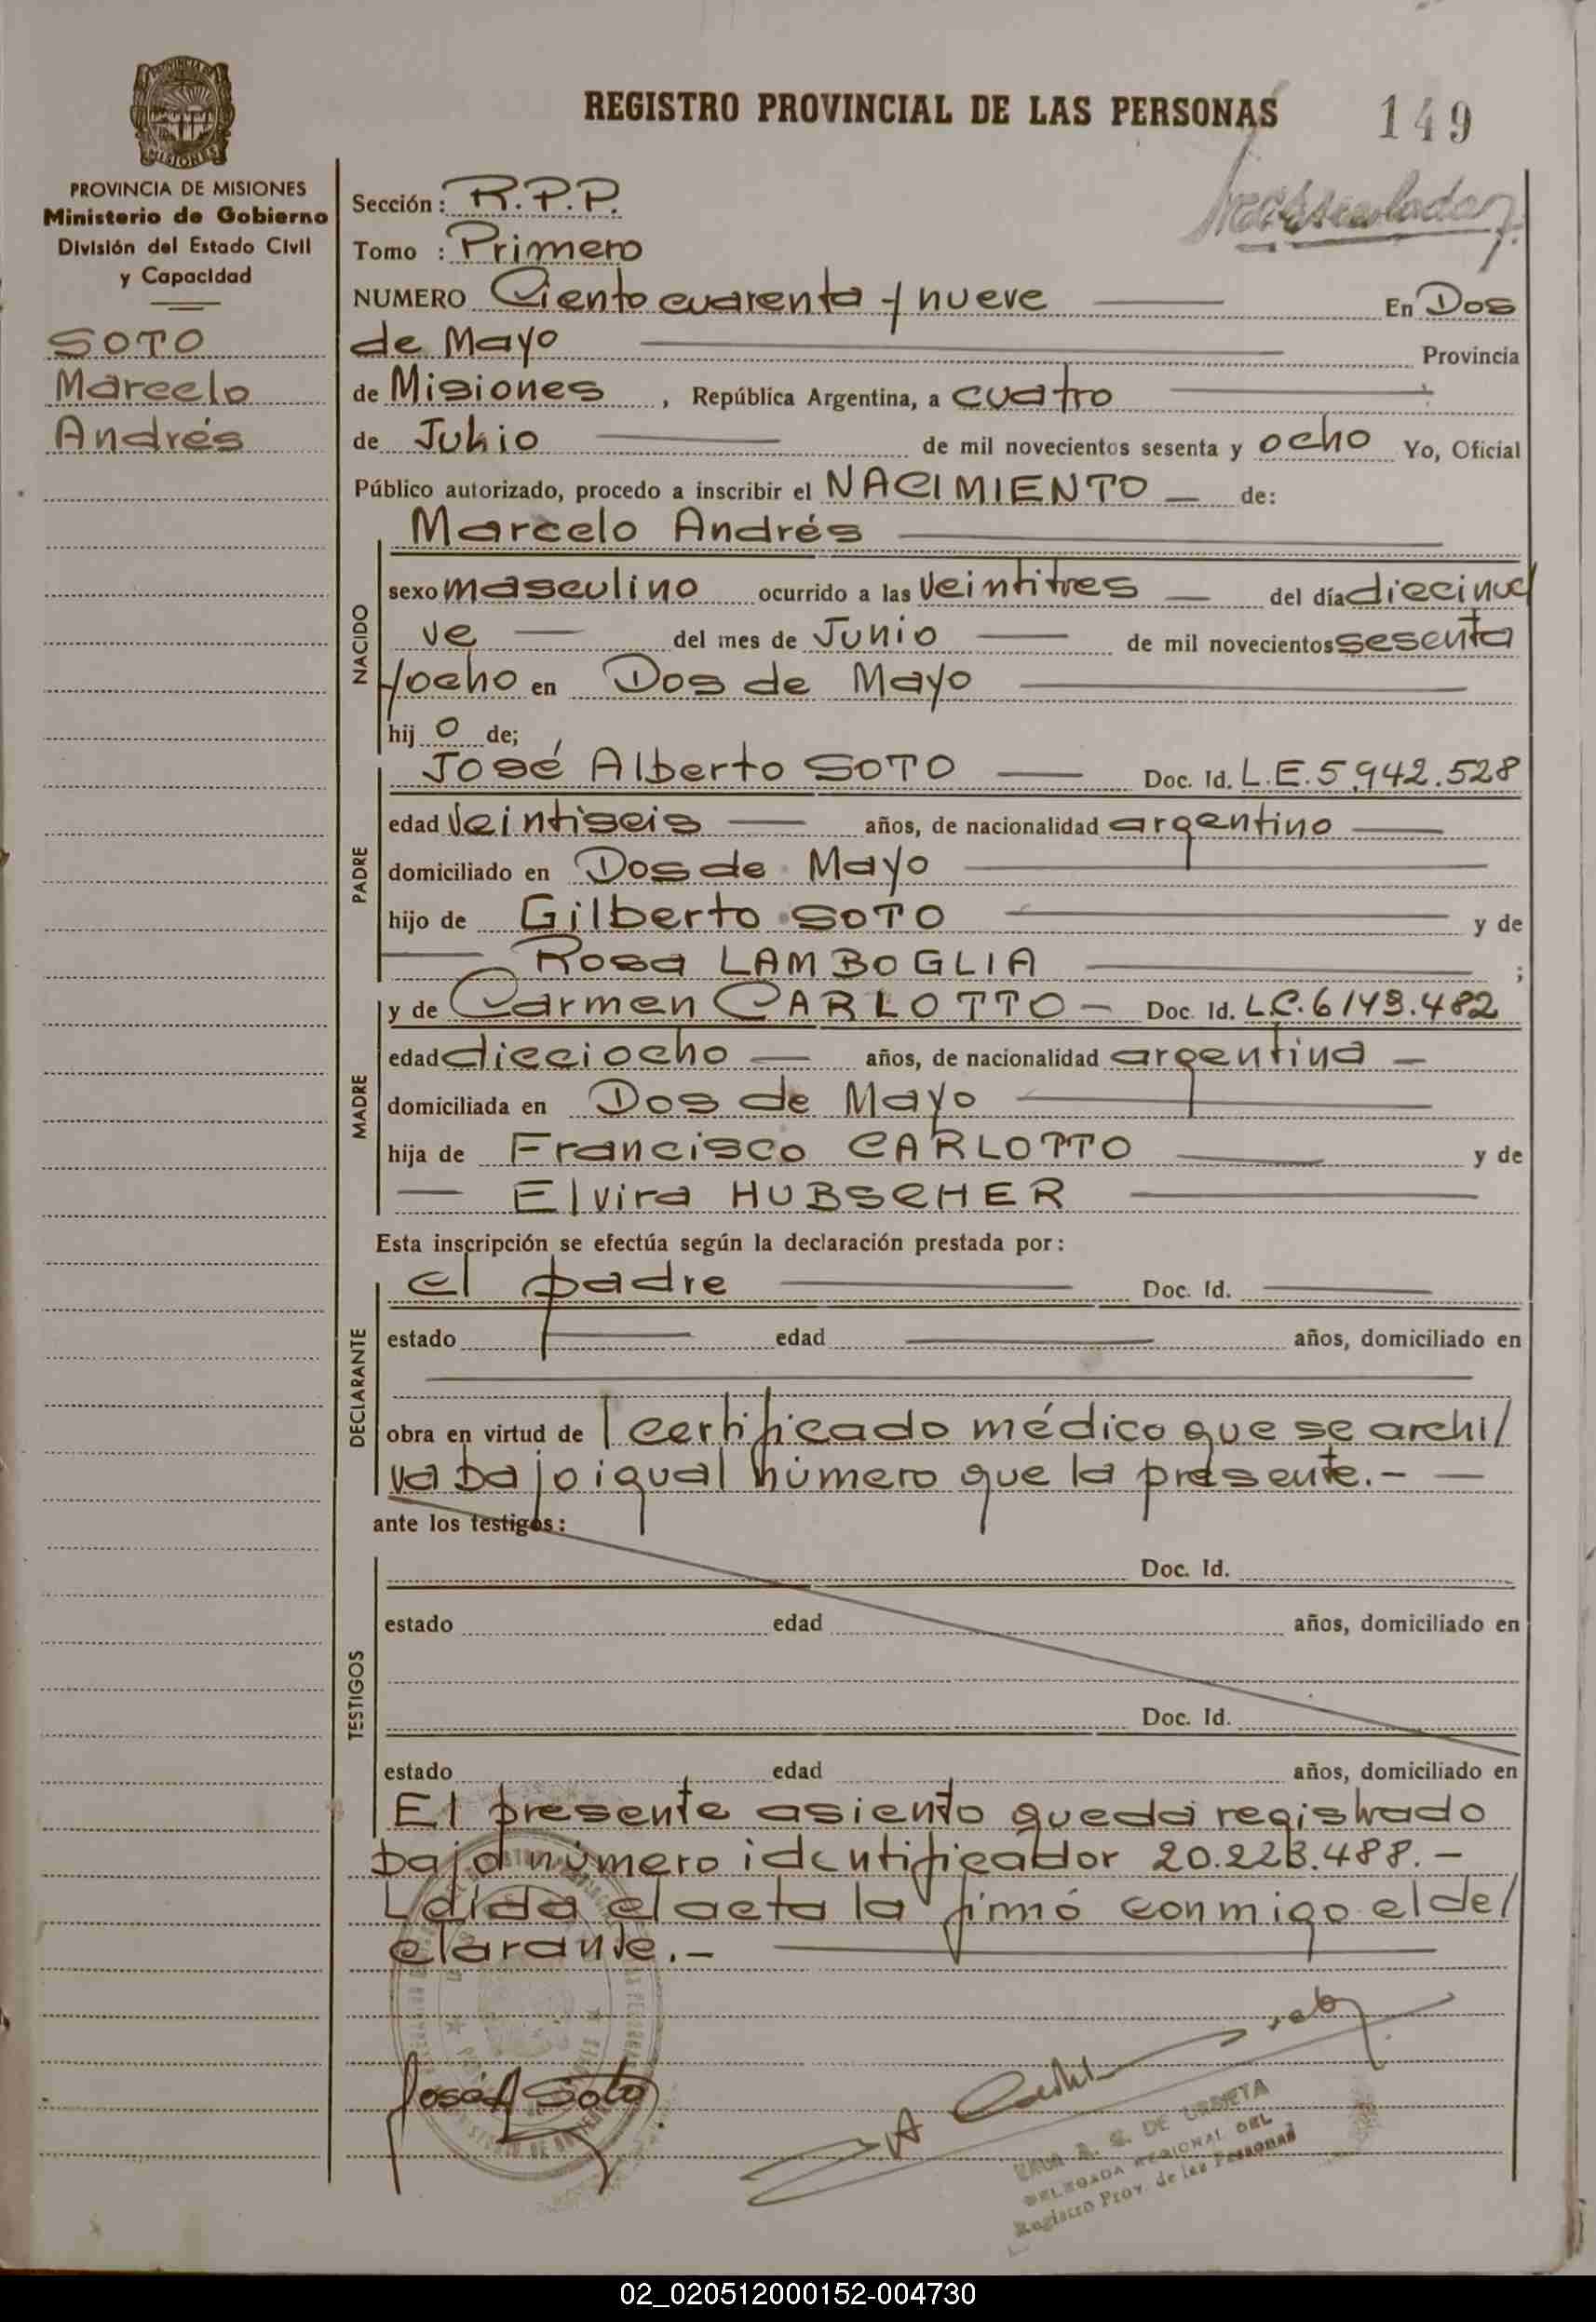 REGISTRO PROVINCIAL DE LAS PERSONAS
149
MISIONES
PROVINCIA DE MISIONES
Ministerio de Gobierno
División del Estado Civil
y Capacidad
SOTO
Marcelo
Andrés
Sección: R.P.P.
Tomo : Primero
NUMERO Ciento cuarenta y nueve En Dos
de Mayo Provincia
de Misiones, República Argentina, a cuatro
de Julio de mil novecientos sesenta y ocho Yo, Oficial
Público autorizado, procedo a inscribir el NACIMIENTO — de:
Marcelo Andrés
NACIDO
sexo masculino ocurrido a las veintitres — del día diecinue/
ve — del mes de Junio — de mil novecientos sesenta
y ocho en Dos de Mayo
hijo de;
PADRE
José Alberto SOTO — Doc. Id. L.E. 5.942.528
edad veintiseis — años, de nacionalidad argentino —
domiciliado en Dos de Mayo
hijo de Gilberto SOTO y de
— Rosa LAMBOGLIA ;
MADRE
y de Carmen CARLOTTO — Doc. Id. L.C. 6149.482
edad dieciocho — años, de nacionalidad argentina —
domiciliada en Dos de Mayo
hija de Francisco CARLOTTO y de
— Elvira HUBSCHER
Esta inscripción se efectúa según la declaración prestada por:
DECLARANTE
el padre Doc. Id.
estado edad años, domiciliado en
obra en virtud de l certificado médico que se archi/
va bajo igual número que la presente.- —
ante los testigos:
TESTIGOS
Doc. Id.
estado edad años, domiciliado en
Doc. Id.
estado edad años, domiciliado en
El presente asiento queda registrado
bajo número identificador 20.223.488.-
Leída el acta la firmó conmigo el de/
clarante.-
José A Soto
A. C. DE URDIETA
DELEGADA REGIONAL DEL
Registro Prov. de las Personas
02_020512000152-004730